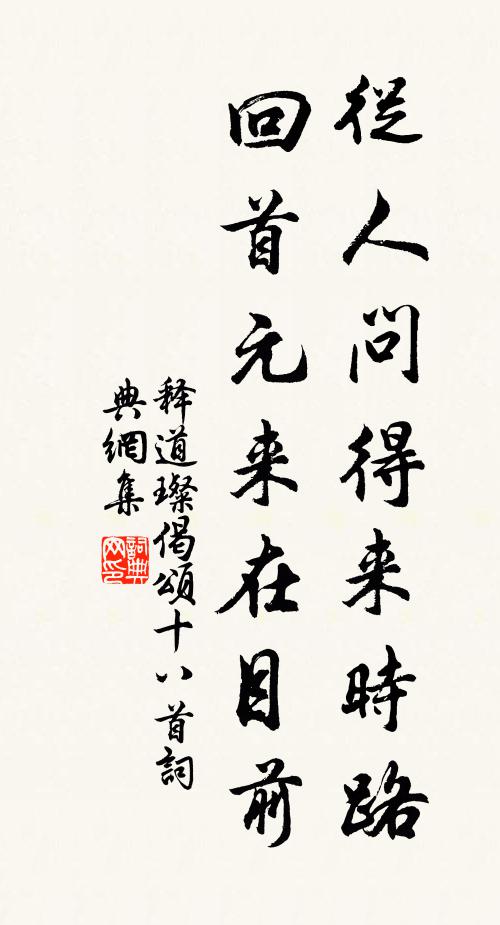 從人問得来時路
回首元来在目前
释道璨偈頌十八首詞
典網集
詞典
网印